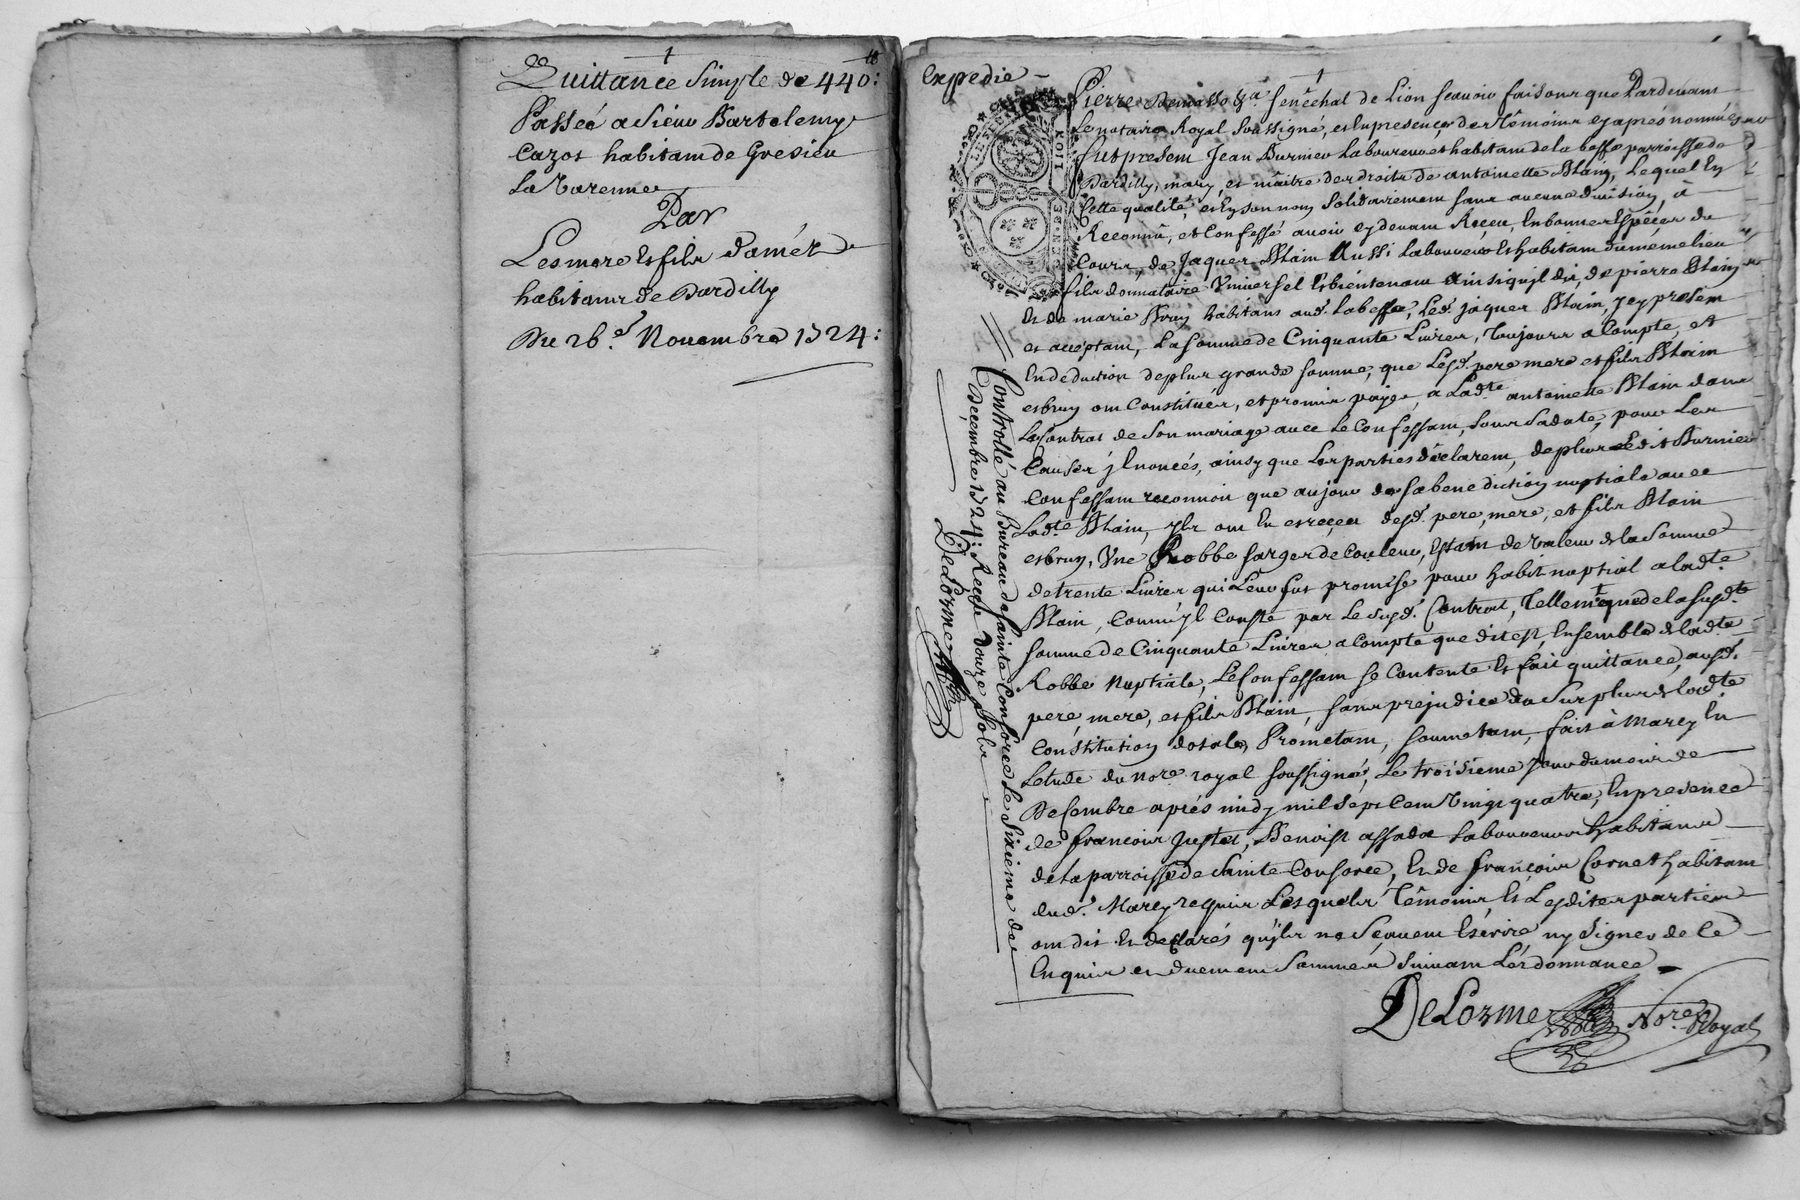 18
Quittance Simple de 440:
Passée a Sieur Bartelemy
Cazot habitant de Gresieu
La Varenne
Par
Les mere et fils Damez
habitans de Dardilly
Du 26.e Novembre 1724:
Expedie
Pierre Demasso &a. Senéchal de Lion scavoir faisons que Pardevant
Le notaire Royal Soussigné, et En presence des Témoins cy aprés nommés
fut present Jean Burnier Laboureur et habitant de la besse parroisse de
Dardilly, mary, et maitre des droits de antoinette Blain, Lequel En
Cette qualité, et En son nom Solidairement sans aucune division, à
Reconnu, et Confessé avoir cy devant Receu, En bonnes Espêces du
Cours, de Jaques Blain Aussi Laboureur Et habitant du méme lieu
fils donnataire Universel Et bientenant ainsi quil dit, de pierre Blain
Et de marie Brun habitans aud. Labesse, Led. Jaques Blain, Jcy present
et acceptant, La somme de Cinquante Livres, Toujours a Compte, et
En deduction de plus grande somme, que Lesd. pere mere et fils Blain
et brun ont Constituée, et promis payer, a Lad.te antoinette Blain dans
Le Contrat de Son mariage avec Le Confessant, Sous Sa date, pour Les
Causes y Enoncés, ainsy que Les parties déclarent, de plus Ledit Burnier
Confessant reconnoit que au jour de Sa benediction nuptiale avec
Lad.te Blain, Jls ont Eu et reçeu desd. pere, mere, et fils Blain
et brun, Une Robbe sarge de Couleur, Estant de Valeur de la Somme
de trente Livres qui Leur fut promise pour habit nuptial a lad.te
Blain, Comm'jl Conste par Le Susd. Contrat, Tellem.t que de la Susd.te
somme de Cinquante Livres a compte que dit est, Ensemble de lad.te
Robbe Nuptiale, Le Confessant se Contente Et fait quittance, ausd.
pere, mere, et fils Blain, sans prejudice du Surplus de lad.te
Constitution dotale, Prometant, soumetant, fait à Marcy En
Letude du No.re royal soussigné, Le troisieme jour du mois de
Desembre aprés midy mil Sept Cent Vingt quatre, En presence
de francois Justet, Benoist assada Laboureurs habitans
de la parroisse de Sainte Consorce, Et de françois Cornet habitant
dud. Marcy requis Lesquels Témoins, Et Lesdites parties
ont dit Et declarés qu'jls ne Sçavent Escrire ny Signer de Ce
Enquis et duement Sommés Suivant L'ordonnance
DeLorme No.re Royal
Controllé au Bureau de Sainte Consorce Le Sixieme de
decembre 1724: Reçeu douze Sols
DeLorme